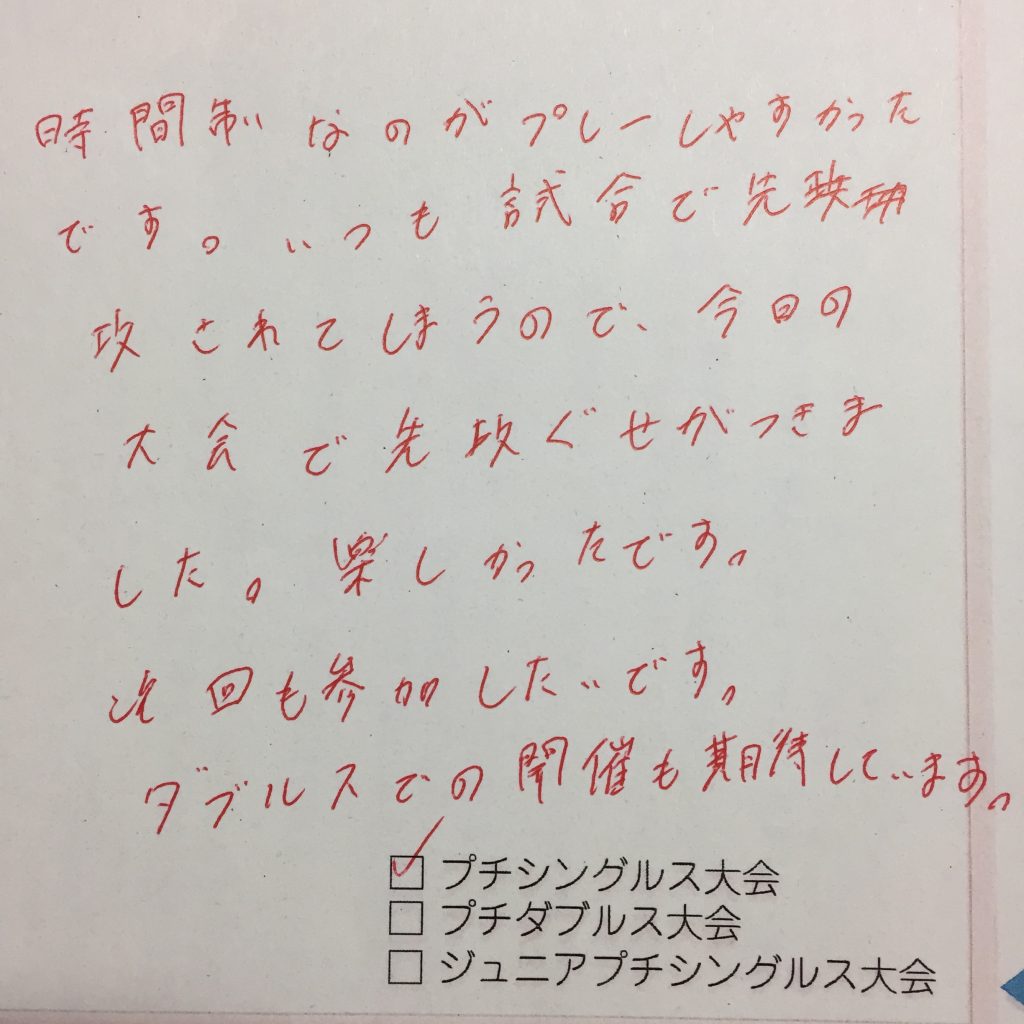 時間制なのがプレーしやすかった
です。いつも試合で先
攻されてしまうので、今回の
大会で先攻ぐせがつきま
した。楽しかったです。
次回も参加したいです。
ダブルスでの開催も期待しています。
プチシングルス大会
プチダブルス大会
ジュニアプチシングルス大会